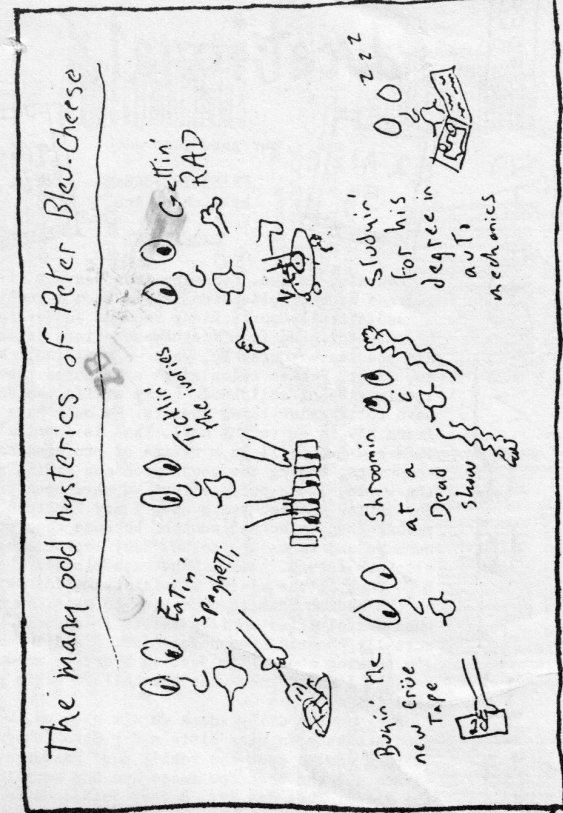 The many odd hysterics of Peter Bleu-Cheese
Eatin'
spaghetti
Ticklin'
the ivories
Gettin'
RAD
Buyin' the
new Crüe
Tape
Shroomin
at a
Dead
show
Studyin'
for his
degree in
auto
mechanics
z z z